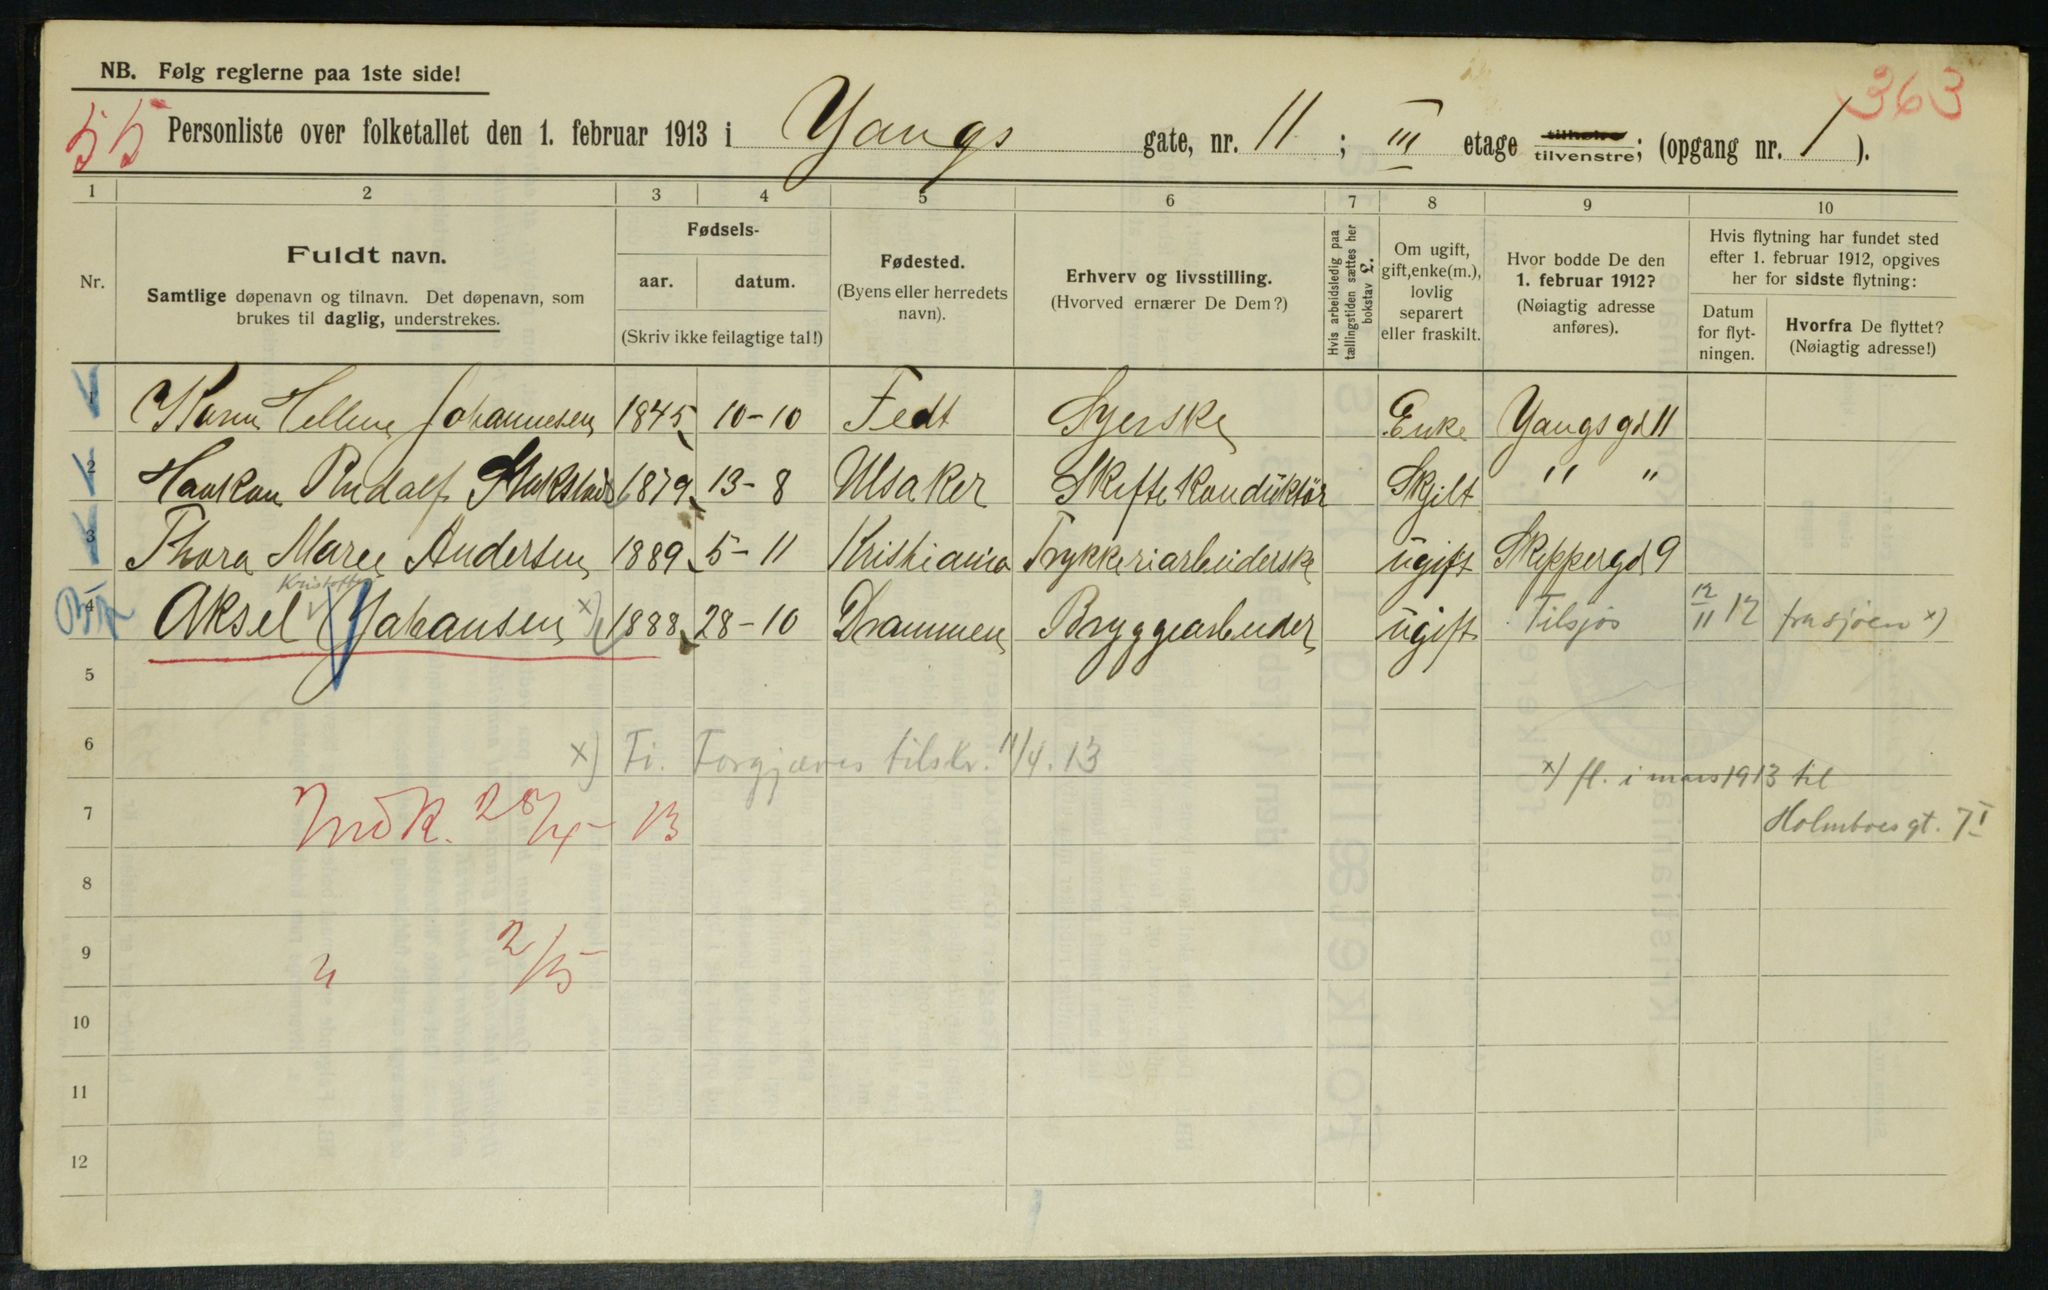 NB. Følg reglerne paa 1ste side!
363
55 Personliste over folketallet den 1. februar 1913 i Yangs gate, nr. 11; III etage tilhøire tilvenstre; (opgang nr. 1).
1 2 3 4 5 6 7 8 9 10
Nr.
Fuldt navn.
Samtlige døpenavn og tilnavn. Det døpenavn, som
brukes til daglig, understrekes.
Fødsels-
aar. datum.
(Skriv ikke feilagtige tal!)
Fødested.
(Byens eller herredets
navn).
Erhverv og livsstilling.
(Hvorved ernærer De Dem?)
Hvis arbeidsledig paa
tællingstiden sættes her
bokstav £.
Om ugift,
gift, enke(m.),
lovlig
separert
eller fraskilt.
Hvor bodde De den
1. februar 1912?
(Nøiagtig adresse
anføres).
Hvis flytning har fundet sted
efter 1. februar 1912, opgives
her for sidste flytning:
Datum
for flyt-
ningen.
Hvorfra De flyttet?
(Nøiagtig adresse!)
1 Karen Helene Johannesen 1845 10-10 Fedt Syerske Enke Yangs gd 11
2 Haakan Rudalf 1879 13-8 Ulsaker Skiftekonduktör Skjilt " "
3 Thora Maree Andersen 1889 5-11 Kristiania Trykkeriarbeiderske ugift Skippergd 9
Kristoffer
4 Aksel Johansen x) 1888 28-10 Drammen Bryggearbeider ugift Tilsjøs 12/11 12 fra sjøen x)
5
6 x) Fi. Forgjæves tilskr. 11/4. 13
x) fl. i mars 1913 til
7 28/4 - 13
Holmboes gt. 7 I
8
9 " 2/5
10
11
12